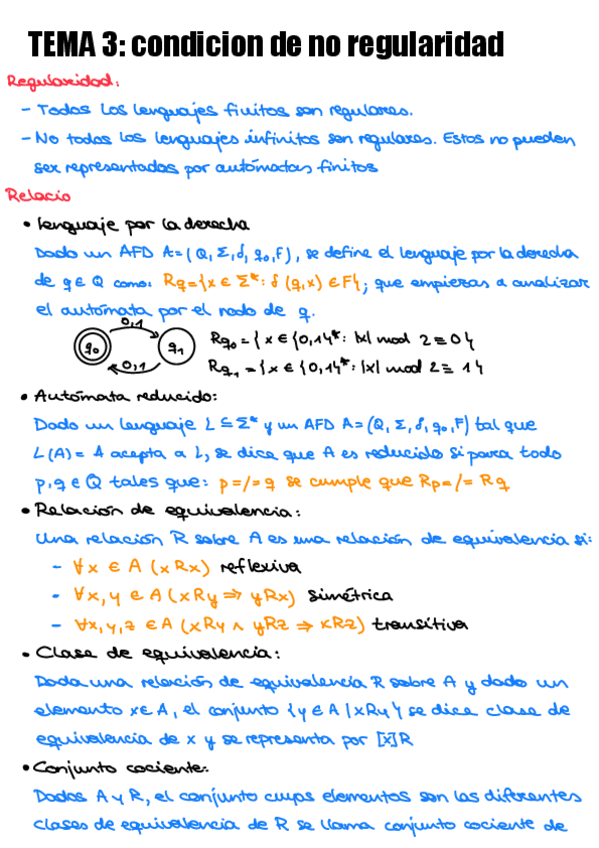 TEMA 3: condicion de no regularidad
Regularidad:
- Todos los lenguajes finitos son regulares.
- No todos los lenguajes infinitos son regulares. Estos no pueden
ser representados por autómatas finitos
Relacio
• lenguaje por la derecha
Dado un AFD A=(Q, Σ, δ, q₀, F), se define el lenguaje por la derecha
de q ∈ Q como: Rq={x ∈ Σ*: δ(q,x) ∈ F}; que empiezas a analizar
el autómata por el nodo de q.
0,1
q₀ q₁
0,1
Rq₀ = {x ∈ {0,1}*: |x| mod 2 = 0}
Rq₁ = {x ∈ {0,1}*: |x| mod 2 = 1}
• Autómata reducido:
Dado un lenguaje L ⊆ Σ* y un AFD A=(Q, Σ, δ, q₀, F) tal que
L(A) = A acepta a L, se dice que A es reducido si para todo
p,q ∈ Q tales que: p=/=q se cumple que Rp=/=Rq
• Relación de equivalencia:
Una relación R sobre A es una relación de equivalencia si:
- ∀x ∈ A (xRx) reflexiva
- ∀x,y ∈ A (xRy ⇒ yRx) simétrica
- ∀x,y,z ∈ A (xRy ∧ yRz ⇒ xRz) transitiva
• Clase de equivalencia:
Dada una relación de equivalencia R sobre A y dado un
elemento x ∈ A, el conjunto {y ∈ A | xRy} se dice clase de
equivalencia de x y se representa por [x]R
• Conjunto cociente:
Dados A y R, el conjunto cuyos elementos son las diferentes
clases de equivalencia de R se llama conjunto cociente de